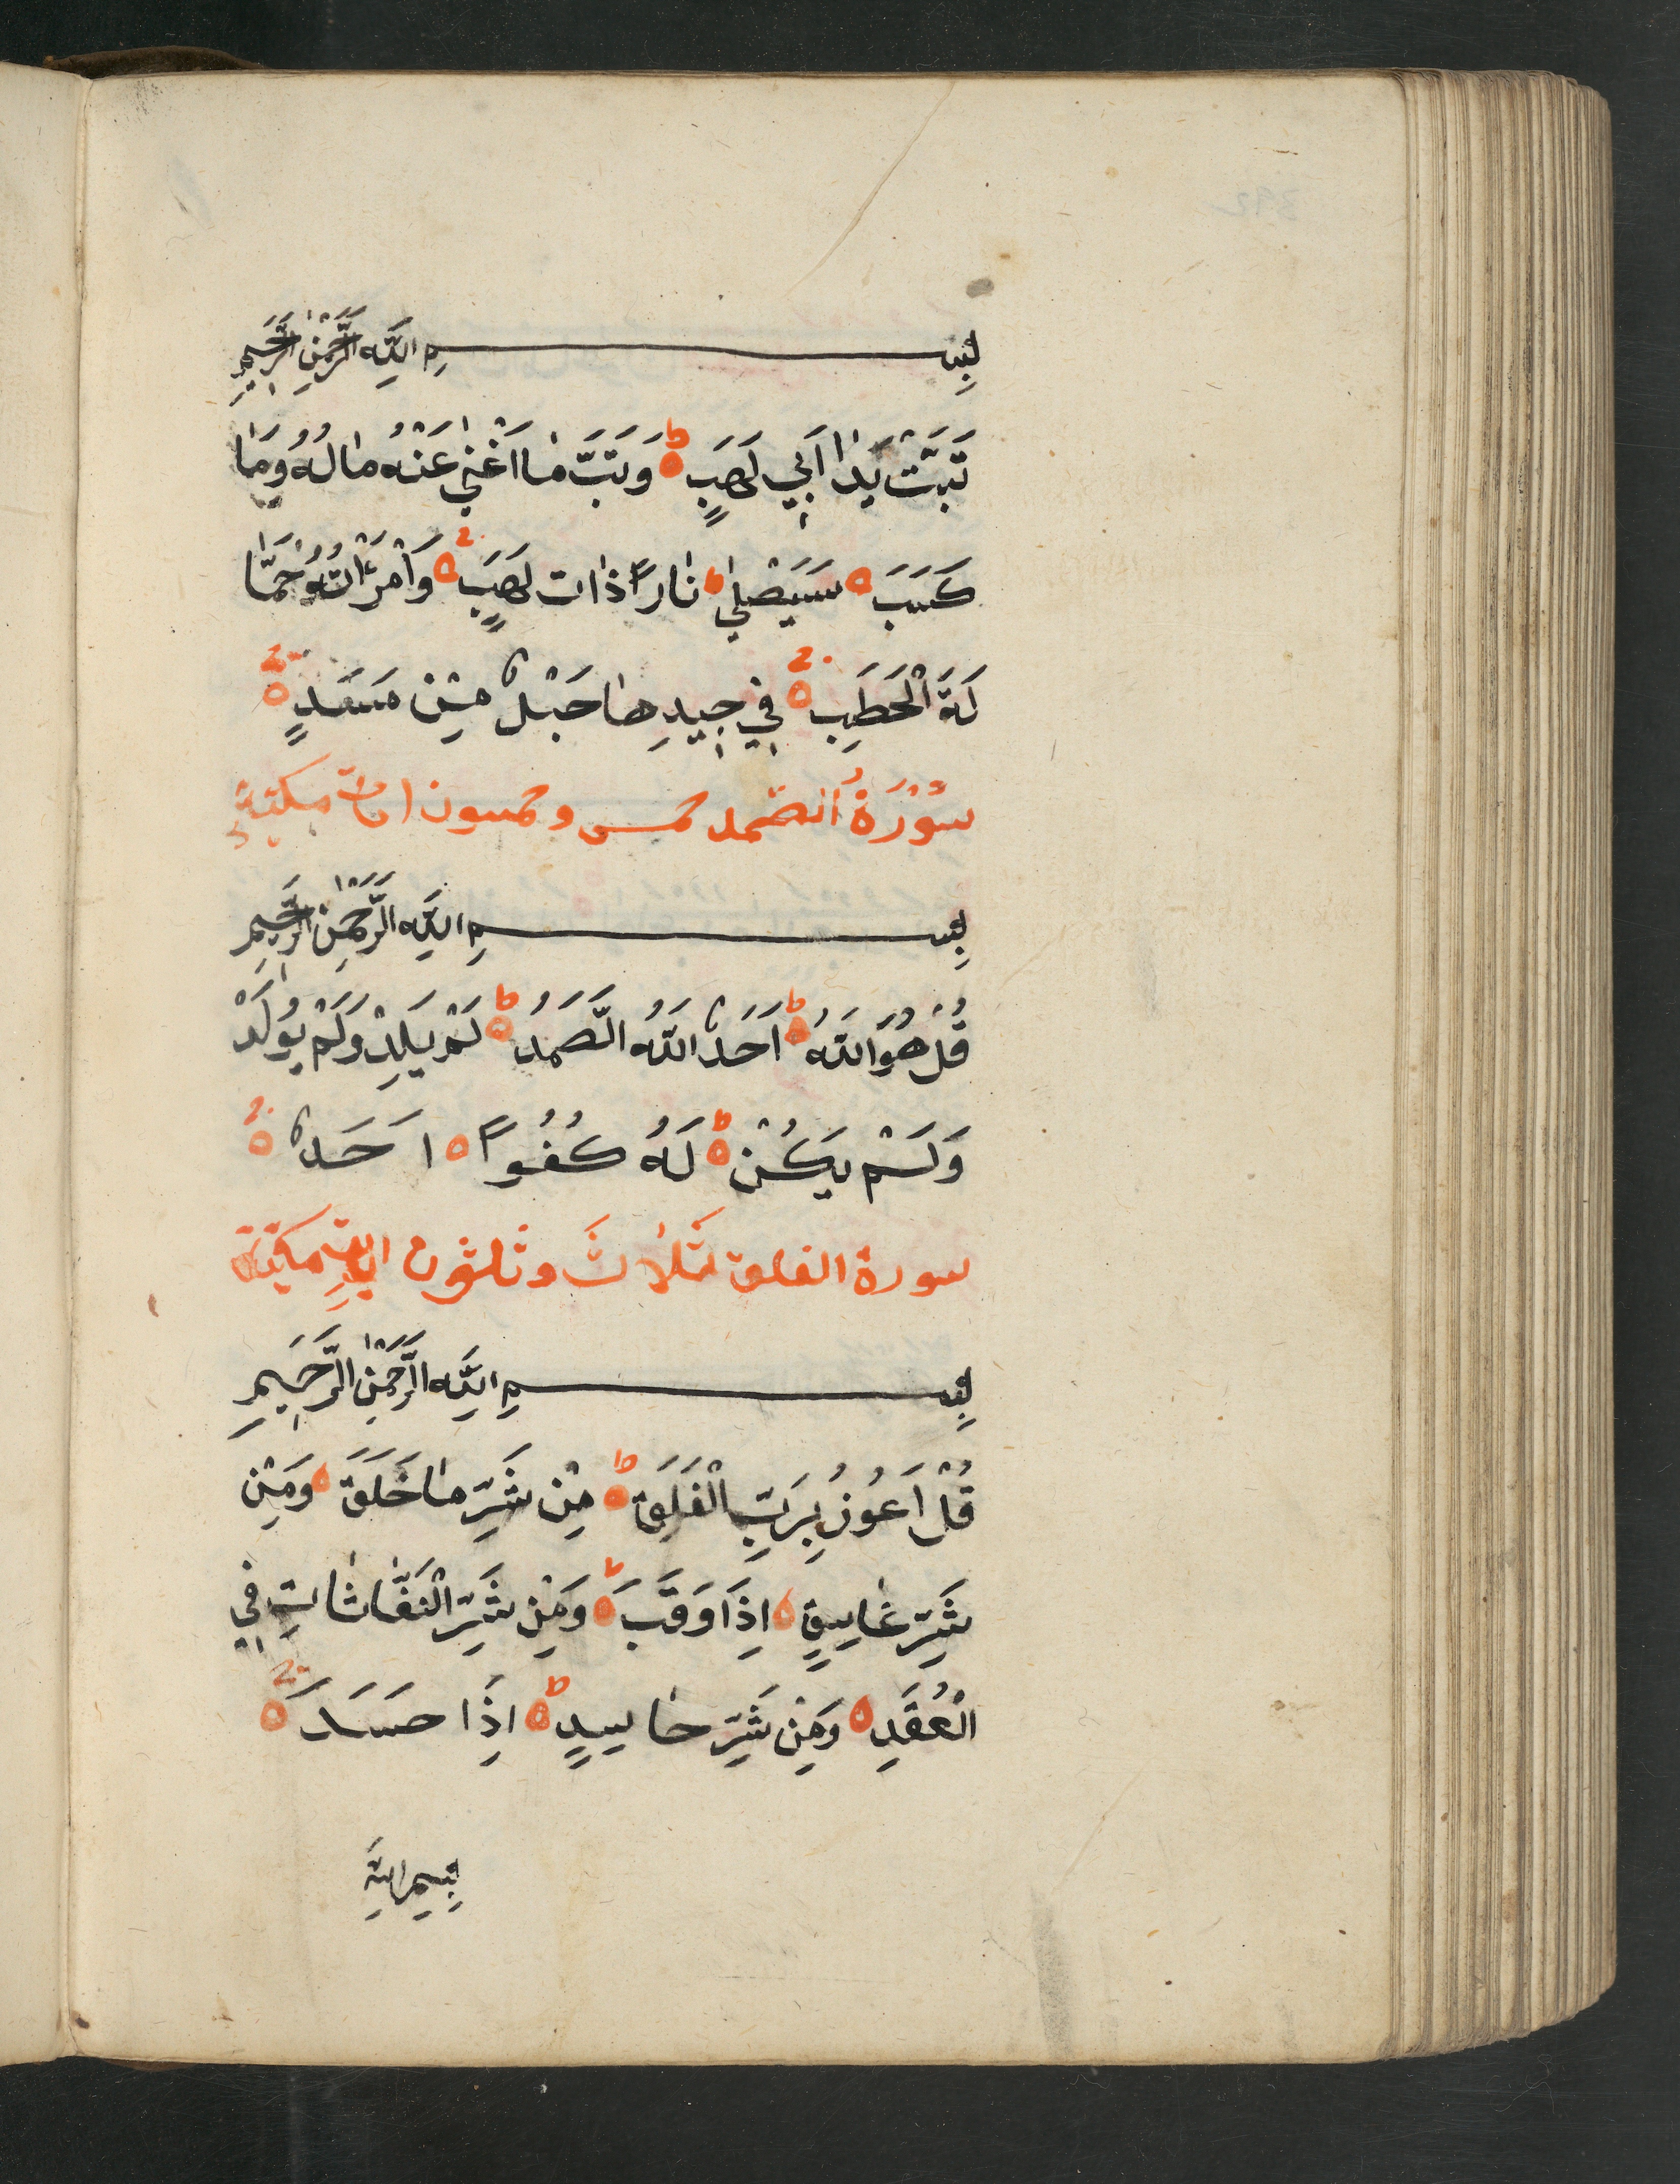 بِسْمِ اللّٰهِ الرَّحْمٰنِ الرَّحِيمِ
تَبَّتْ يَدَا اَبِي لَهَبٍ ۵ ط وَتَبَّ مَا اَغْنٰي عَنْهُ مَالُهُ وَمَا
كَسَبَ ۵ سَيَصْلٰي نَاراً ذَات لَهَبٍ ۵ وَامْرَاَتُهُ حَمَّا
لَةَ الْحَطَبِ ۵ فِي جِيدِهَا حَبْلٌ مِنْ مَسَدٍ ۵
سُوْرَةُ الصمد خمس وخمسون ايات مكية
بِسْمِ اللّٰهِ الرَّحْمٰنِ الرَّحِيمِ
قُلْ هُوَ اللّٰهُ ۵ ط اَحَدٌ اللّٰهُ الصَّمَدُ ۵ ط لَمْ يَلِدْ وَلَمْ يُولَدْ
وَلَمْ يَكُنْ ۵ ط لَهُ كُفُواً ۵ اَحَدٌ ۵
سورة الفلق ثَلاثَ وثلثون اية مكية
بِسْمِ اللّٰهِ الرَّحْمٰنِ الرَّحِيمِ
قُلْ اَعُوذُ بِرَبِّ الْفَلَقِ ۵ ط مِنْ شَرِّ مَا خَلَقَ ۵ وَمِنْ
شَرِّ غَاسِقٍ ۵ اِذَا وَقَبَ ۵ ط وَمِنْ شَرِّ النَفَّاثَاتِ فِي
الْعُقَدِ ۵ وَمِنْ شَرِّ حَاسِدٍ ۵ ط اِذَا حَسَدَ ۵
بِسِمِ اللّٰهِ